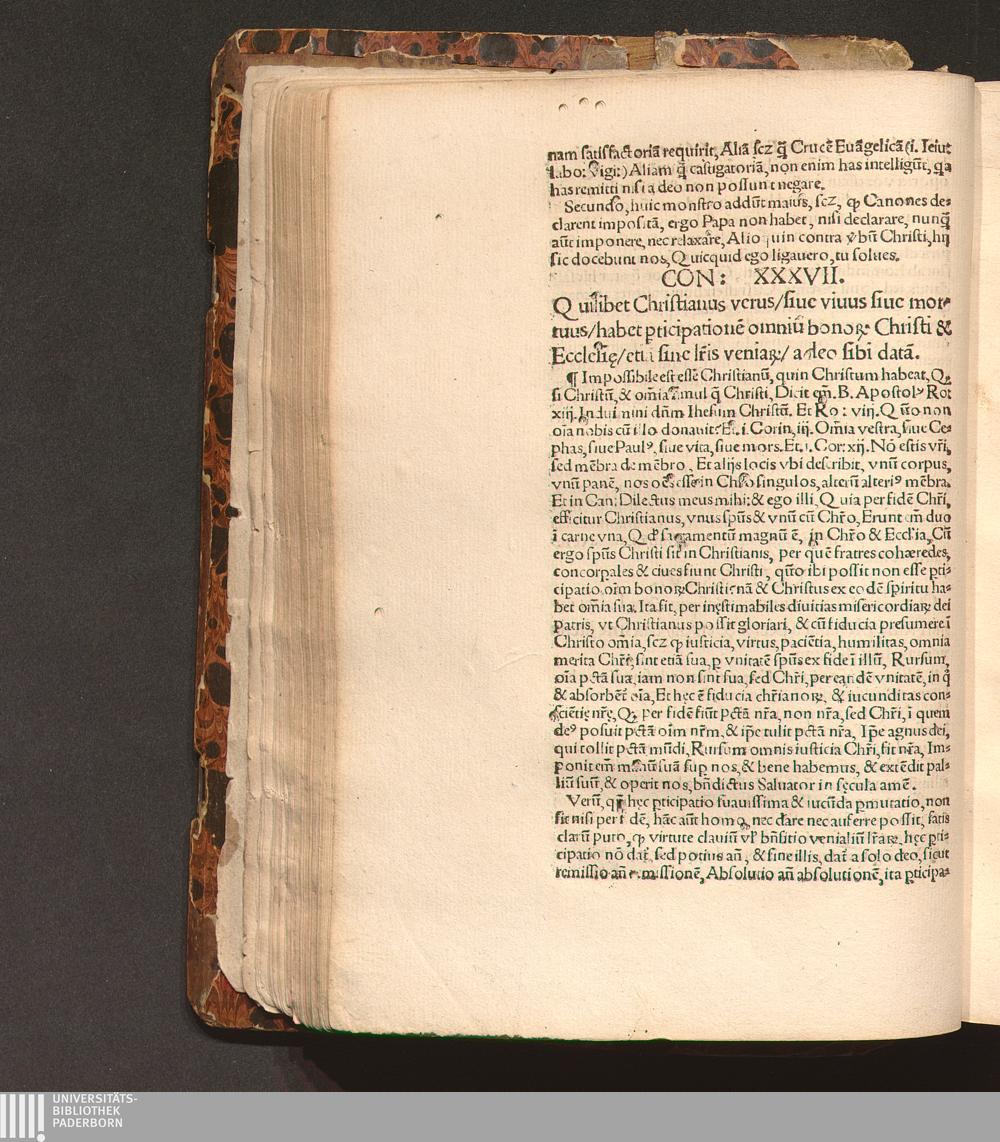 nam satisfactoriã requirit, Aliã scz q̃ Crucẽ Euãgelicã (i. Ieiu:
labo: Vigi:) Aliam q̃ castigatoriã, non enim has intelligũt, qa
has remitti nisi a deo non possunt negare.
Secundo, huic monstro addũt maius, scz, ꝙ Canones de⸗
clarent impositã, ergo Papa non habet, nisi declarare, nunq̃
aũt imponere, nec relaxare, Alioquin contra ꝟbũ Christi, hij
sic docebunt nos, Quicquid ego ligauero, tu solues.
CON: XXXVII.
Quilibet Christianus verus/siue viuus siue mor⸗
tuus/habet ꝑticipationẽ omniũ bonoꝝ Christi &
Ecclesię/etiã sine lr̃is veniaꝝ/ a deo sibi datã.
¶ Impossibile est esse Christianũ, quin Christum habeat, Q
si Christũ, & om̃ia simul q̃ Christi, Dicit em̃. B. Apostolꝰ Ro:
xiij. Induimini dñm Ihesum Christũ. Et Ro: viij. Quõ non
oĩa nobis cũ illo donauit? Et. i. Corin. iij. Om̃ia vestra, siue Ce⸗
phas, siue Paulꝰ, siue vita, siue mors. Et. i. Cor: xij. Nõ estis vr̃i,
sed mẽbra de mẽbro. Et alijs locis vbi describit, vnũ corpus,
vnũ panẽ, nos oẽs esse in Chr̃o singulos, alterũ alteriꝰ mẽbra.
Et in Can: Dilectus meus mihi: & ego illi. Quia per fidẽ Chr̃i,
efficitur Christianus, vnus spũs & vnũ cũ Chr̃o, Erunt em̃ duo
ĩ carne vna, Qđ sacramentũ magnũ ẽ, in Chr̃o & Eccl'ia, Cũ
ergo spũs Christi sit in Christianis, per quẽ fratres cohæredes,
concorpales & ciues fiunt Christi, quõ ibi possit non esse ꝑti⸗
cipatio oĩm bonoꝝ Christi: nã & Christus ex eodẽ spiritu ha⸗
bet om̃ia sua. Ita fit, per inęstimabiles diuitias misericordiaꝝ dei
patris, vt Christianus possit gloriari, & cũ fiducia presumere ĩ
Christo om̃ia, scz ꝙ iusticia, virtus, paciẽtia, humilitas, omnia
merita Chr̃i, sint etiã sua, ꝑ vnitatẽ spũs ex fide ĩ illũ, Rursum,
oĩa pctã sua iam non sint sua, sed Chr̃i, per eandẽ vnitatẽ, in q̃
& absorbẽt̃ oĩa, Et hęc ẽ fiducia chr̃ianoꝝ, & iucunditas con⸗
sciẽtię nr̃ę, Q per fidẽ fiũt pctã nr̃a, non nr̃a, sed Chr̃i, ĩ quem
deꝰ posuit pctã oĩm nr̃m, & ip̃e tulit pctã nr̃a, Ip̃e agnus dei,
qui tollit pctã mũdi, Rursum omnis iusticia Chr̃i, fit nr̃a, Im⸗
ponit em̃ manũ suã sup̲ nos, & bene habemus, & extẽdit pal⸗
liũ suũ, & operit nos, bñdictus Saluator in sęcula amẽ.
Verũ, qm̃ hęc ꝑticipatio suauissima & iucũda ꝑmutatio, non
fit nisi per fidẽ, hãc aũt homo, nec dare nec auferre possit, satis
clarũ puto, ꝙ virtute clauiũ vl' bñficio venialiũ lr̃aꝝ, hęc ꝑti⸗
cipatio nõ dat̃, sed potius añ, & sine illis, dat̃ a solo deo, sicut
remissio añ remissionẽ, Absolutio añ absolutionẽ, ita ꝑticipa⸗
UNIVERSITÄTS-
BIBLIOTHEK
PADERBORN